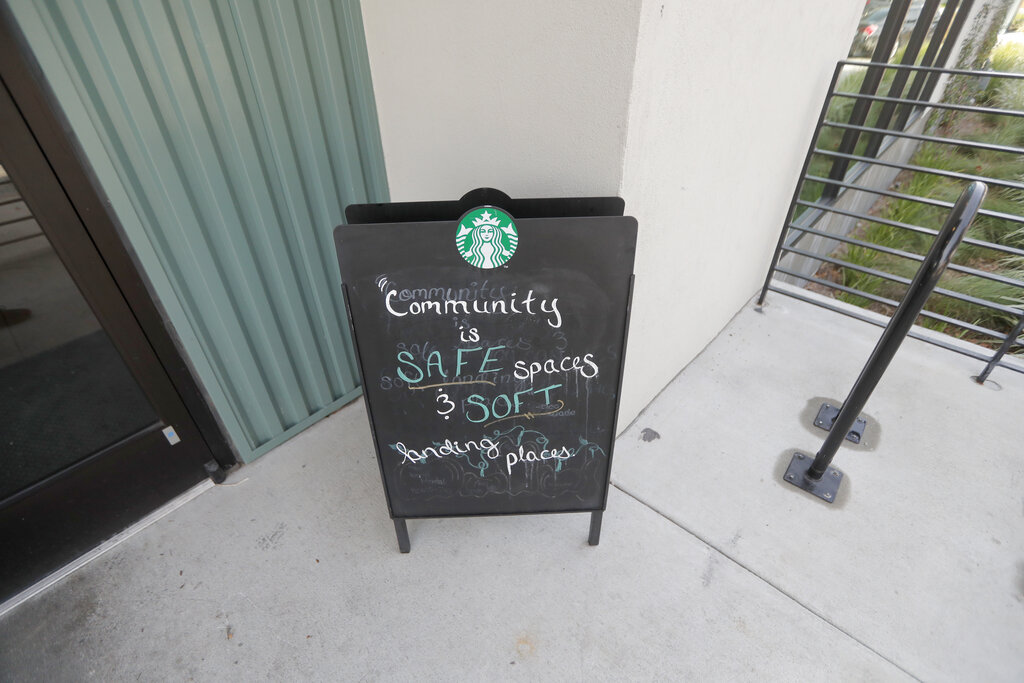 "Community"
is
SAFE spaces
& SOFT
landing places.